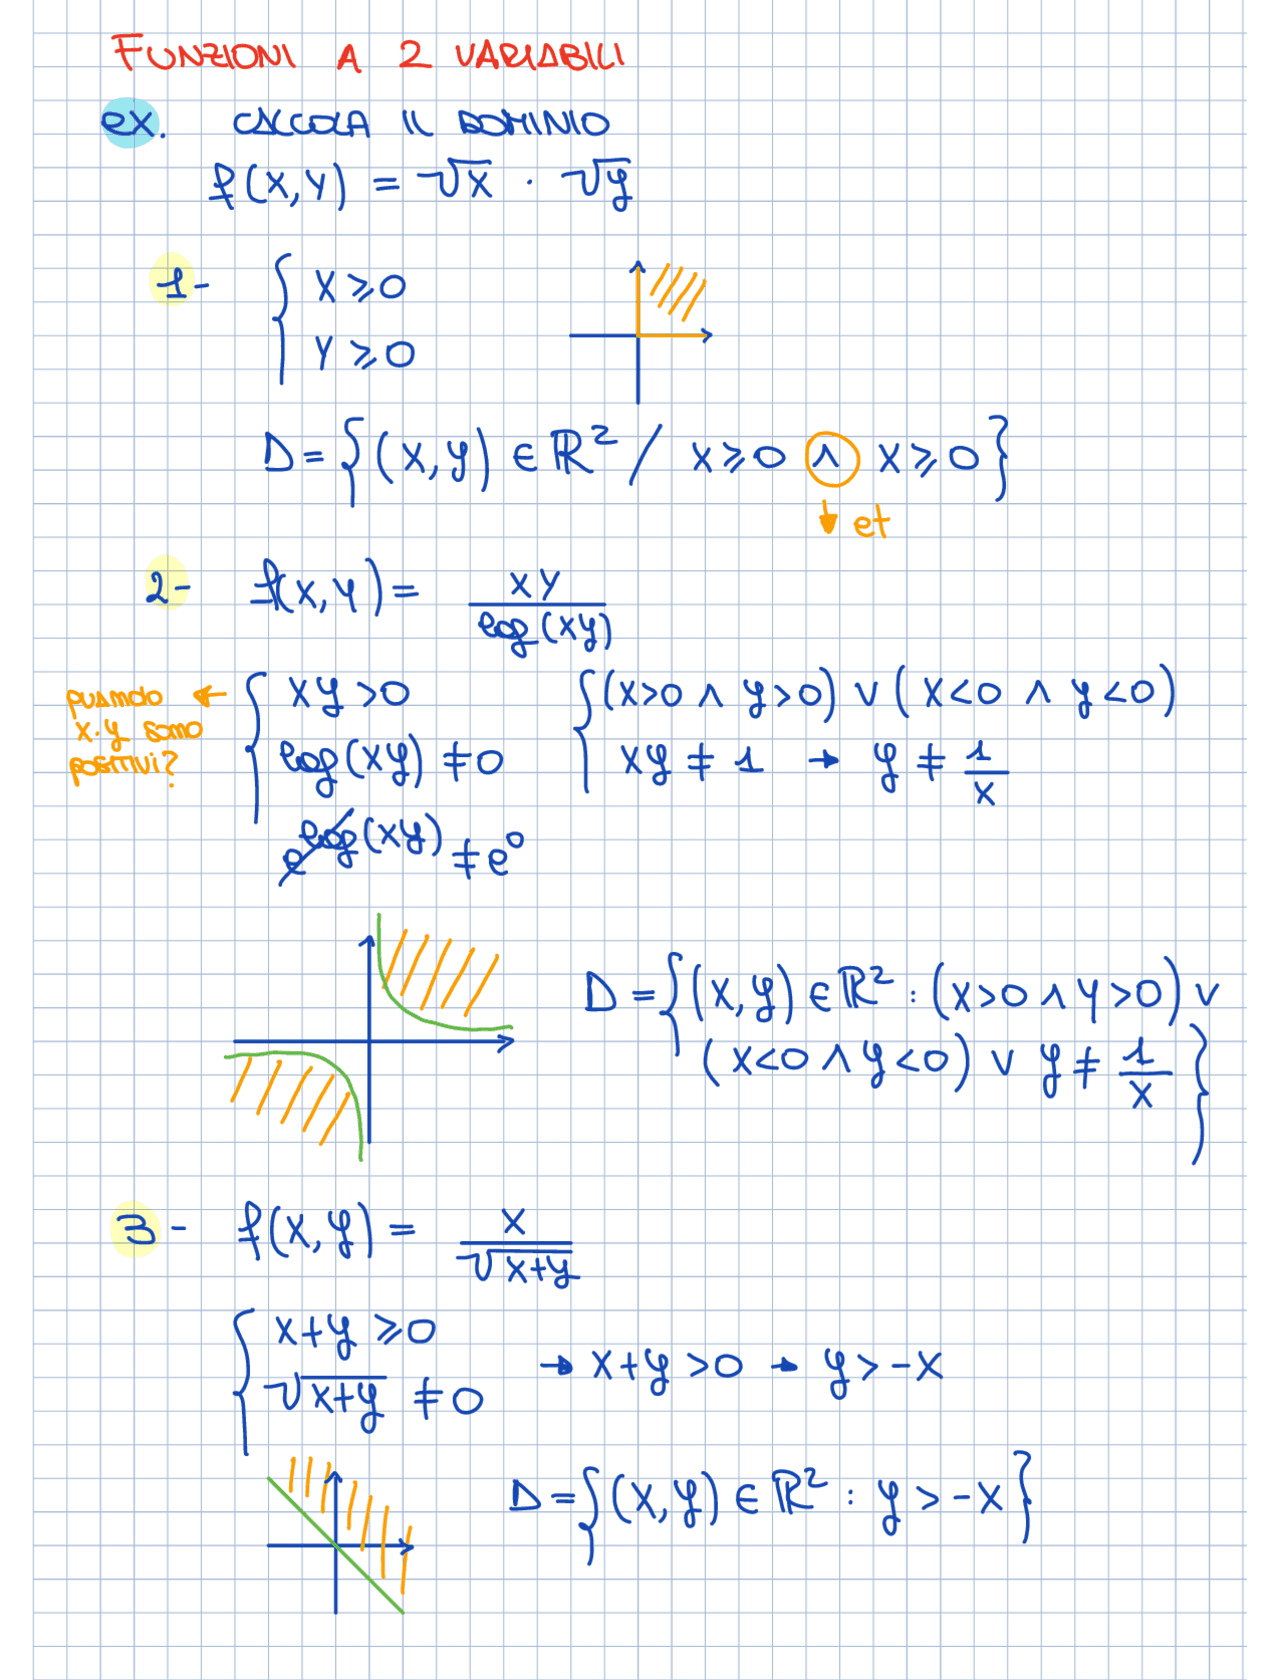 FUNZIONI A 2 VARIABILI
ex. CALCOLA IL DOMINIO
f(x,y) = √x · √y
1- { x ≥ 0
y ≥ 0
D = {(x,y) ∈ ℝ² / x ≥ 0 ∧ x ≥ 0}
et
2- f(x,y) = xy / log(xy)
quando x·y sono positivi? ← { xy > 0
log(xy) ≠ 0
e^log(xy) ≠ e⁰
{ (x>0 ∧ y>0) ∨ (x<0 ∧ y<0)
xy ≠ 1 → y ≠ 1/x
D = {(x,y) ∈ ℝ² : (x>0 ∧ y>0) ∨
(x<0 ∧ y<0) ∨ y ≠ 1/x}
3- f(x,y) = x / √x+y
{ x+y ≥ 0
√x+y ≠ 0
→ x+y > 0 → y > -x
D = {(x,y) ∈ ℝ² : y > -x}